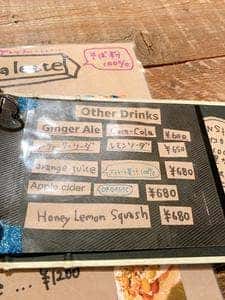 alette
そば粉
100%
Other Drinks
Ginger Ale Coca-Cola ¥600
レモンソーダ ¥650
orange juice ¥680
Apple cider ORGANIC ¥680
Honey Lemon Squash ¥680
... ¥1200